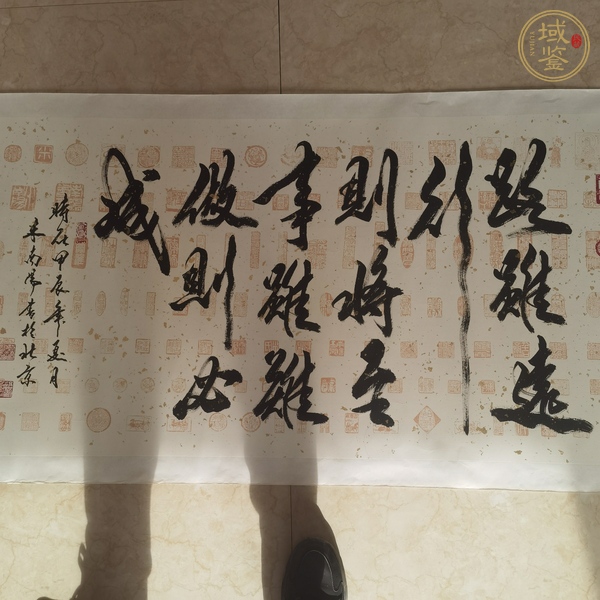 路雖遠
行
則將至
事雖難
做則必
成
時在甲辰年月
書於北京
域鉴